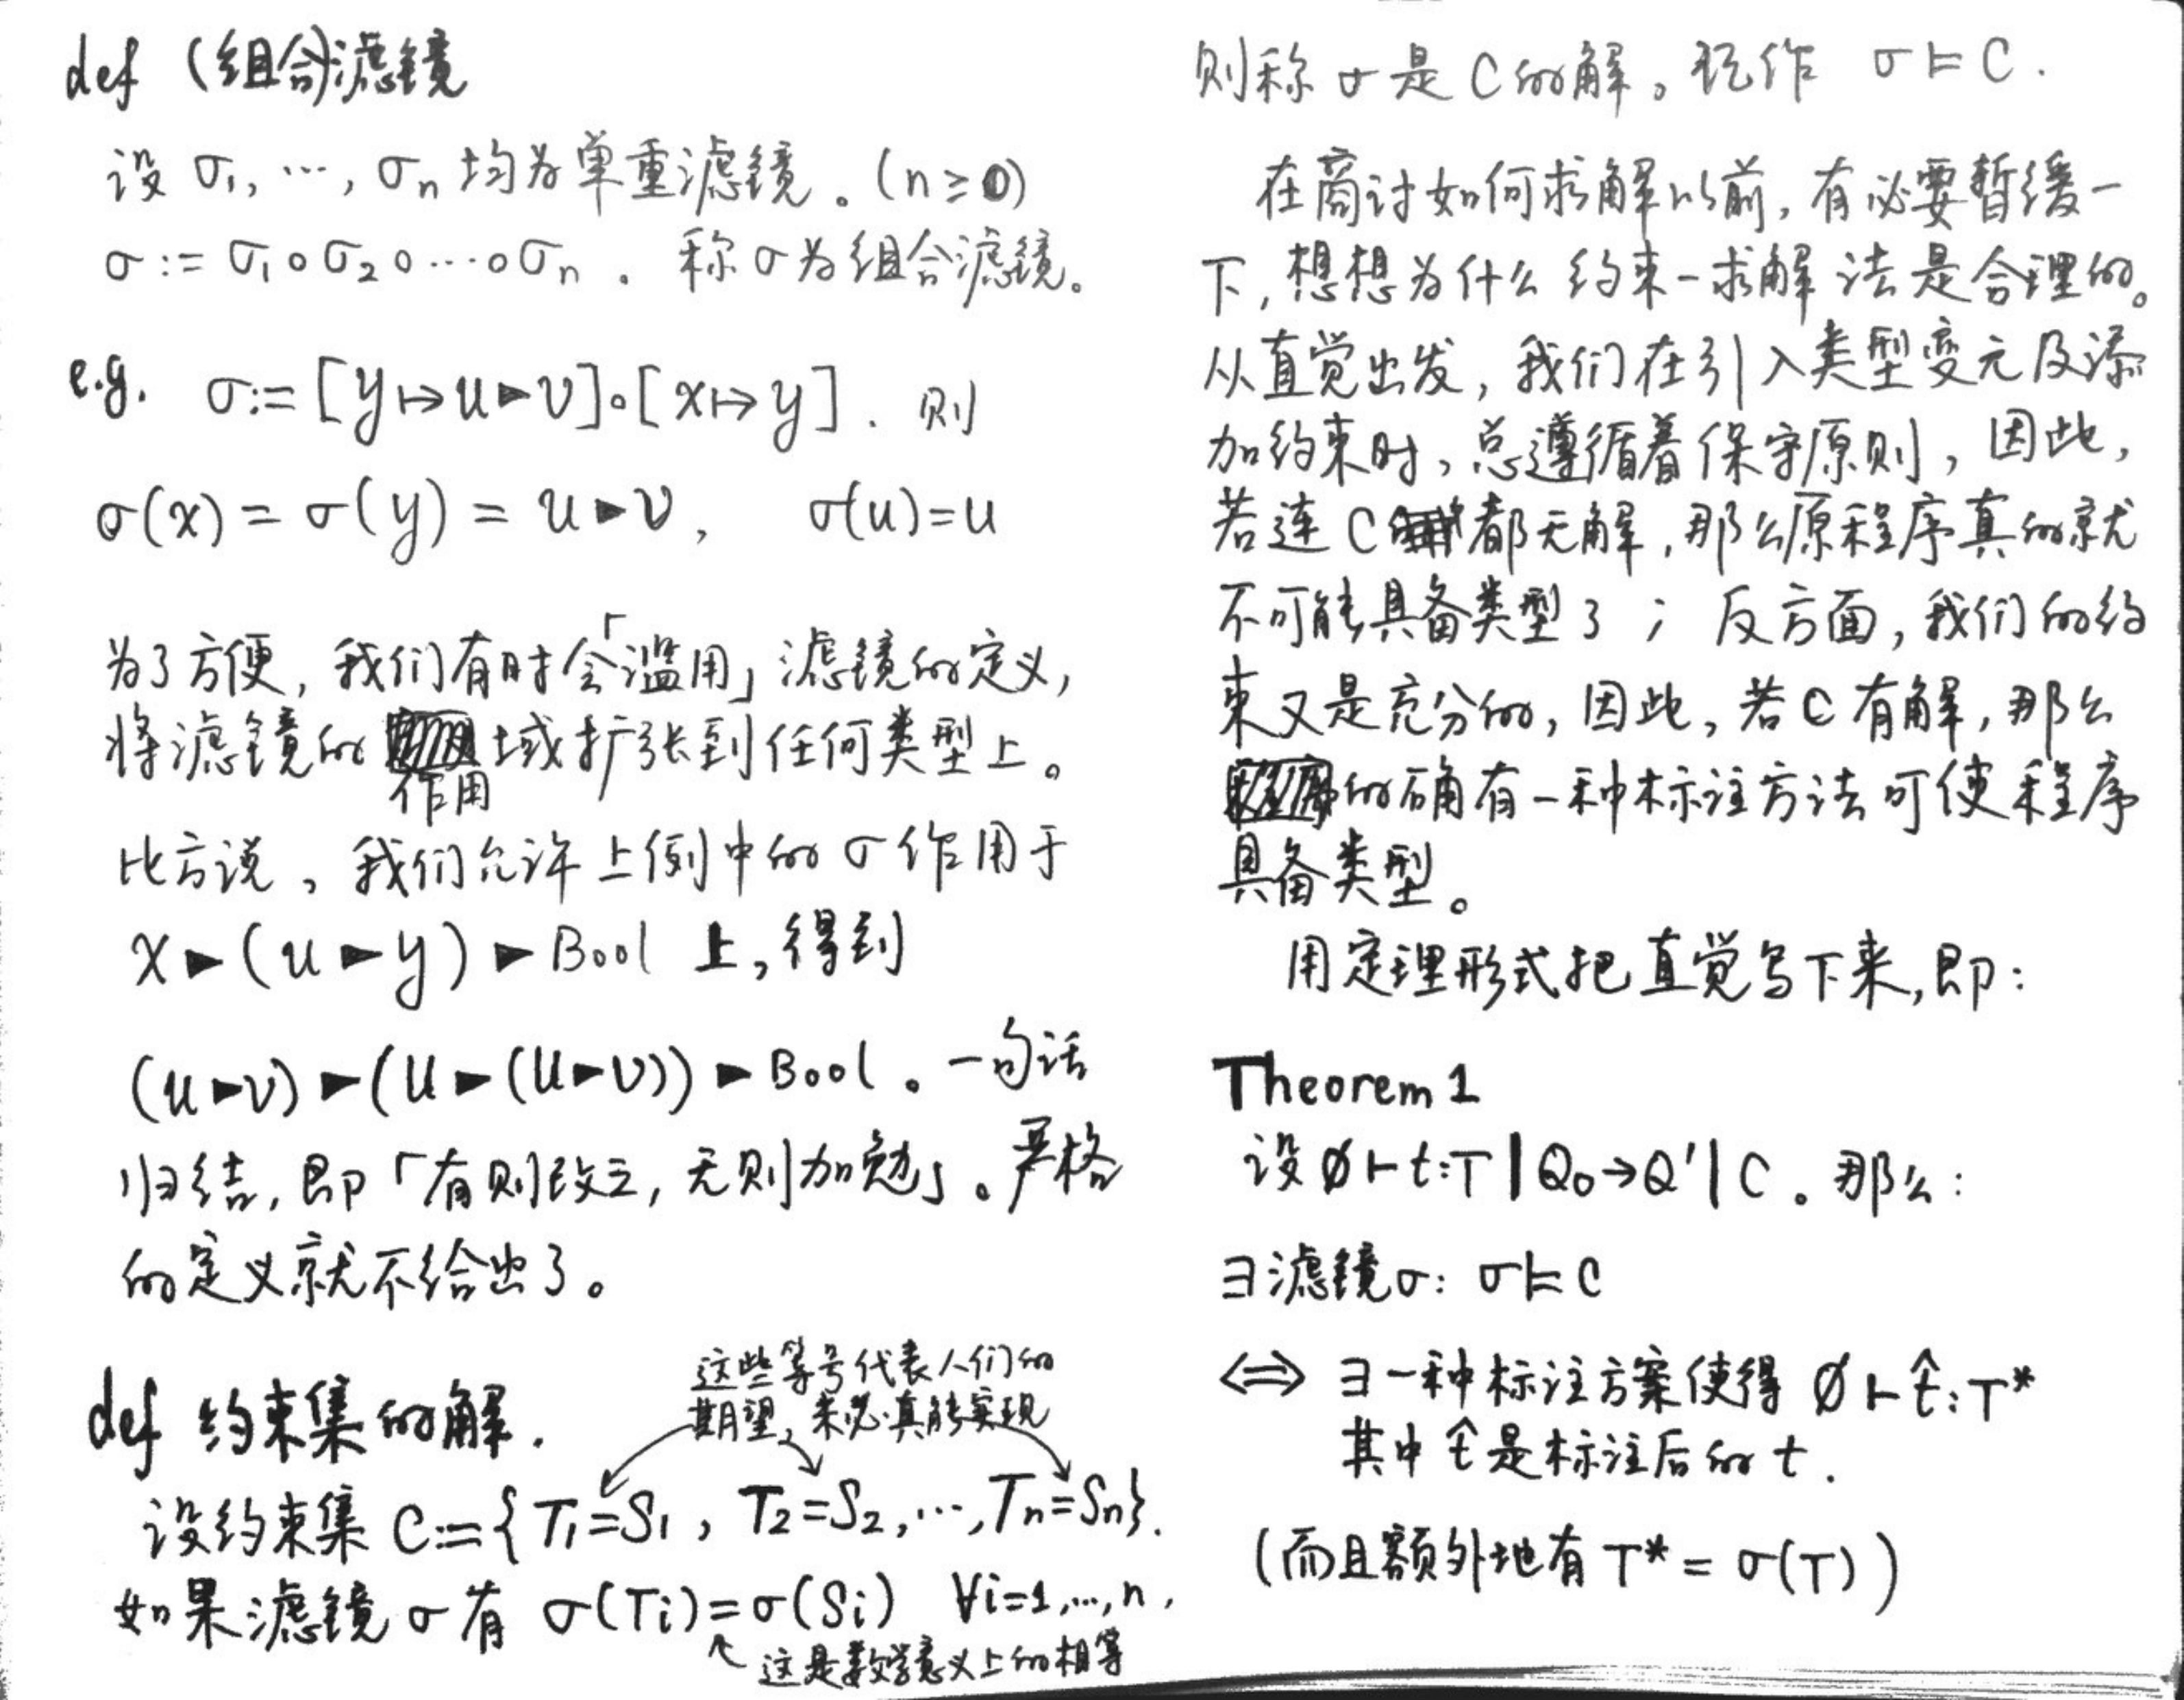 def (组合)滤镜
设 σ₁, ⋯, σn 均为单重滤镜。(n≥0)
σ := σ₁∘σ₂∘⋯∘σn. 称σ为组合滤镜。
e.g. σ:= [y↦u▶v]∘[x↦y]. 则
σ(x) = σ(y) = u▶v, σ(u)=u
为了方便, 我们有时会「滥用」滤镜的定义,
将滤镜的作用域扩张到任何类型上。
比方说, 我们允许上例中的σ作用于
x▶(u▶y)▶Bool 上, 得到
(u▶v)▶(u▶(u▶v))▶Bool。一句话
归结, 即「有则改之, 无则加勉」。严格
的定义就不给出了。
def 约束集的解.
这些等号代表人们的
期望, 未必真能实现
设约束集 C:={T₁=S₁, T₂=S₂, ⋯, Tn=Sn}.
如果滤镜σ有 σ(Ti)=σ(Si) ∀i=1,…,n,
这是数学意义上的相等
则称σ是C的解。记作 σ⊨C.
在商讨如何求解以前, 有必要暂缓一
下, 想想为什么约束-求解法是合理的。
从直觉出发, 我们在引入类型变元及添
加约束时, 总遵循着保守原则, 因此,
若连C都无解, 那么原程序真的就
不可能具备类型了; 反方面, 我们的约
束又是充分的, 因此, 若C有解, 那么
的确有一种标注方法可使程序
具备类型。
用定理形式把直觉写下来, 即:
Theorem 1
设 ∅⊢t:T | Q₀→Q' | C。那么:
∃滤镜σ: σ⊨C
⟺ ∃一种标注方案使得 ∅⊢t̂:T*
其中t̂是标注后的t.
(而且额外地有 T* = σ(T))